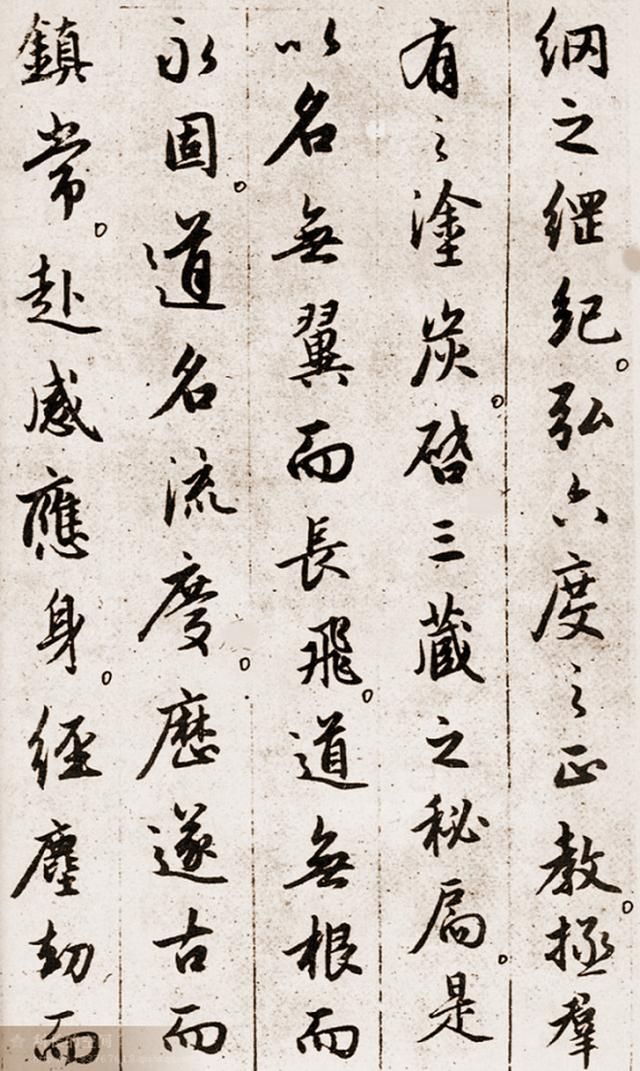 綱之綱紀。弘六度之正教。拯羣
有之塗炭。啓三藏之秘扃。是
以名無翼而長飛。道無根而
永固。道名流慶。歷遂古而
鎮常。赴感應身。經塵劫而